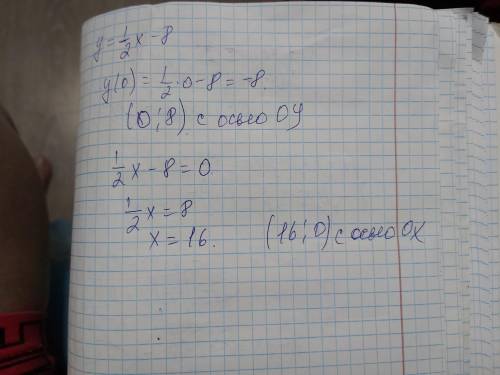 y = 1/2 x - 8
y(0) = 1/2 · 0 - 8 = -8.
(0; 8) с осью ОУ
1/2 x - 8 = 0
1/2 x = 8
x = 16. (16; 0) с осью ОХ